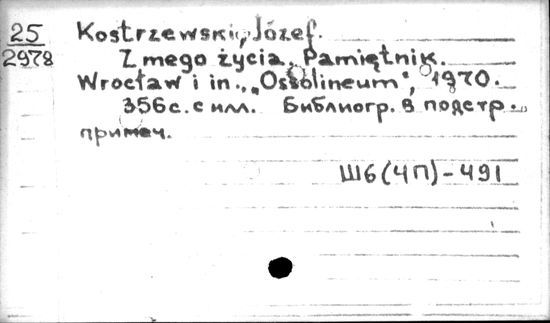 25
2978
Kostrzewski, Józef.
Z mego życia. Pamiętnik.
Wrocław i in., „Ossolineum", 1970.
356с. с илл. Библиогр. в подстр.
примеч.
Ш6(4П)-491